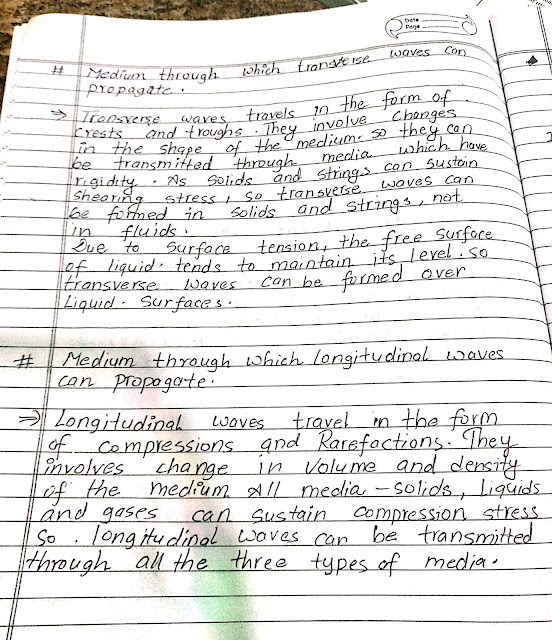 Date
Page
# Medium through which transverse waves can
propagate.
⇒ Transverse waves travels in the form of
crests and troughs. They involve changes
in the shape of the medium. so they can
be transmitted through media which have
rigidity. As solids and strings can sustain
shearing stress, so transverse waves can
be formed in solids and strings, not
in fluids.
Due to surface tension, the free surface
of liquid. tends to maintain its level. so
transverse waves can be formed over
Liquid. Surfaces.
# Medium through which longitudinal waves
can propogate.
⇒ Longitudinal waves travel in the form
of compressions and Rarefactions. They
involves change in volume and density
of the medium All media - solids, Liquids
and gases can sustain compression stress
So. longitudinal waves can be transmitted
through all the three types of media.